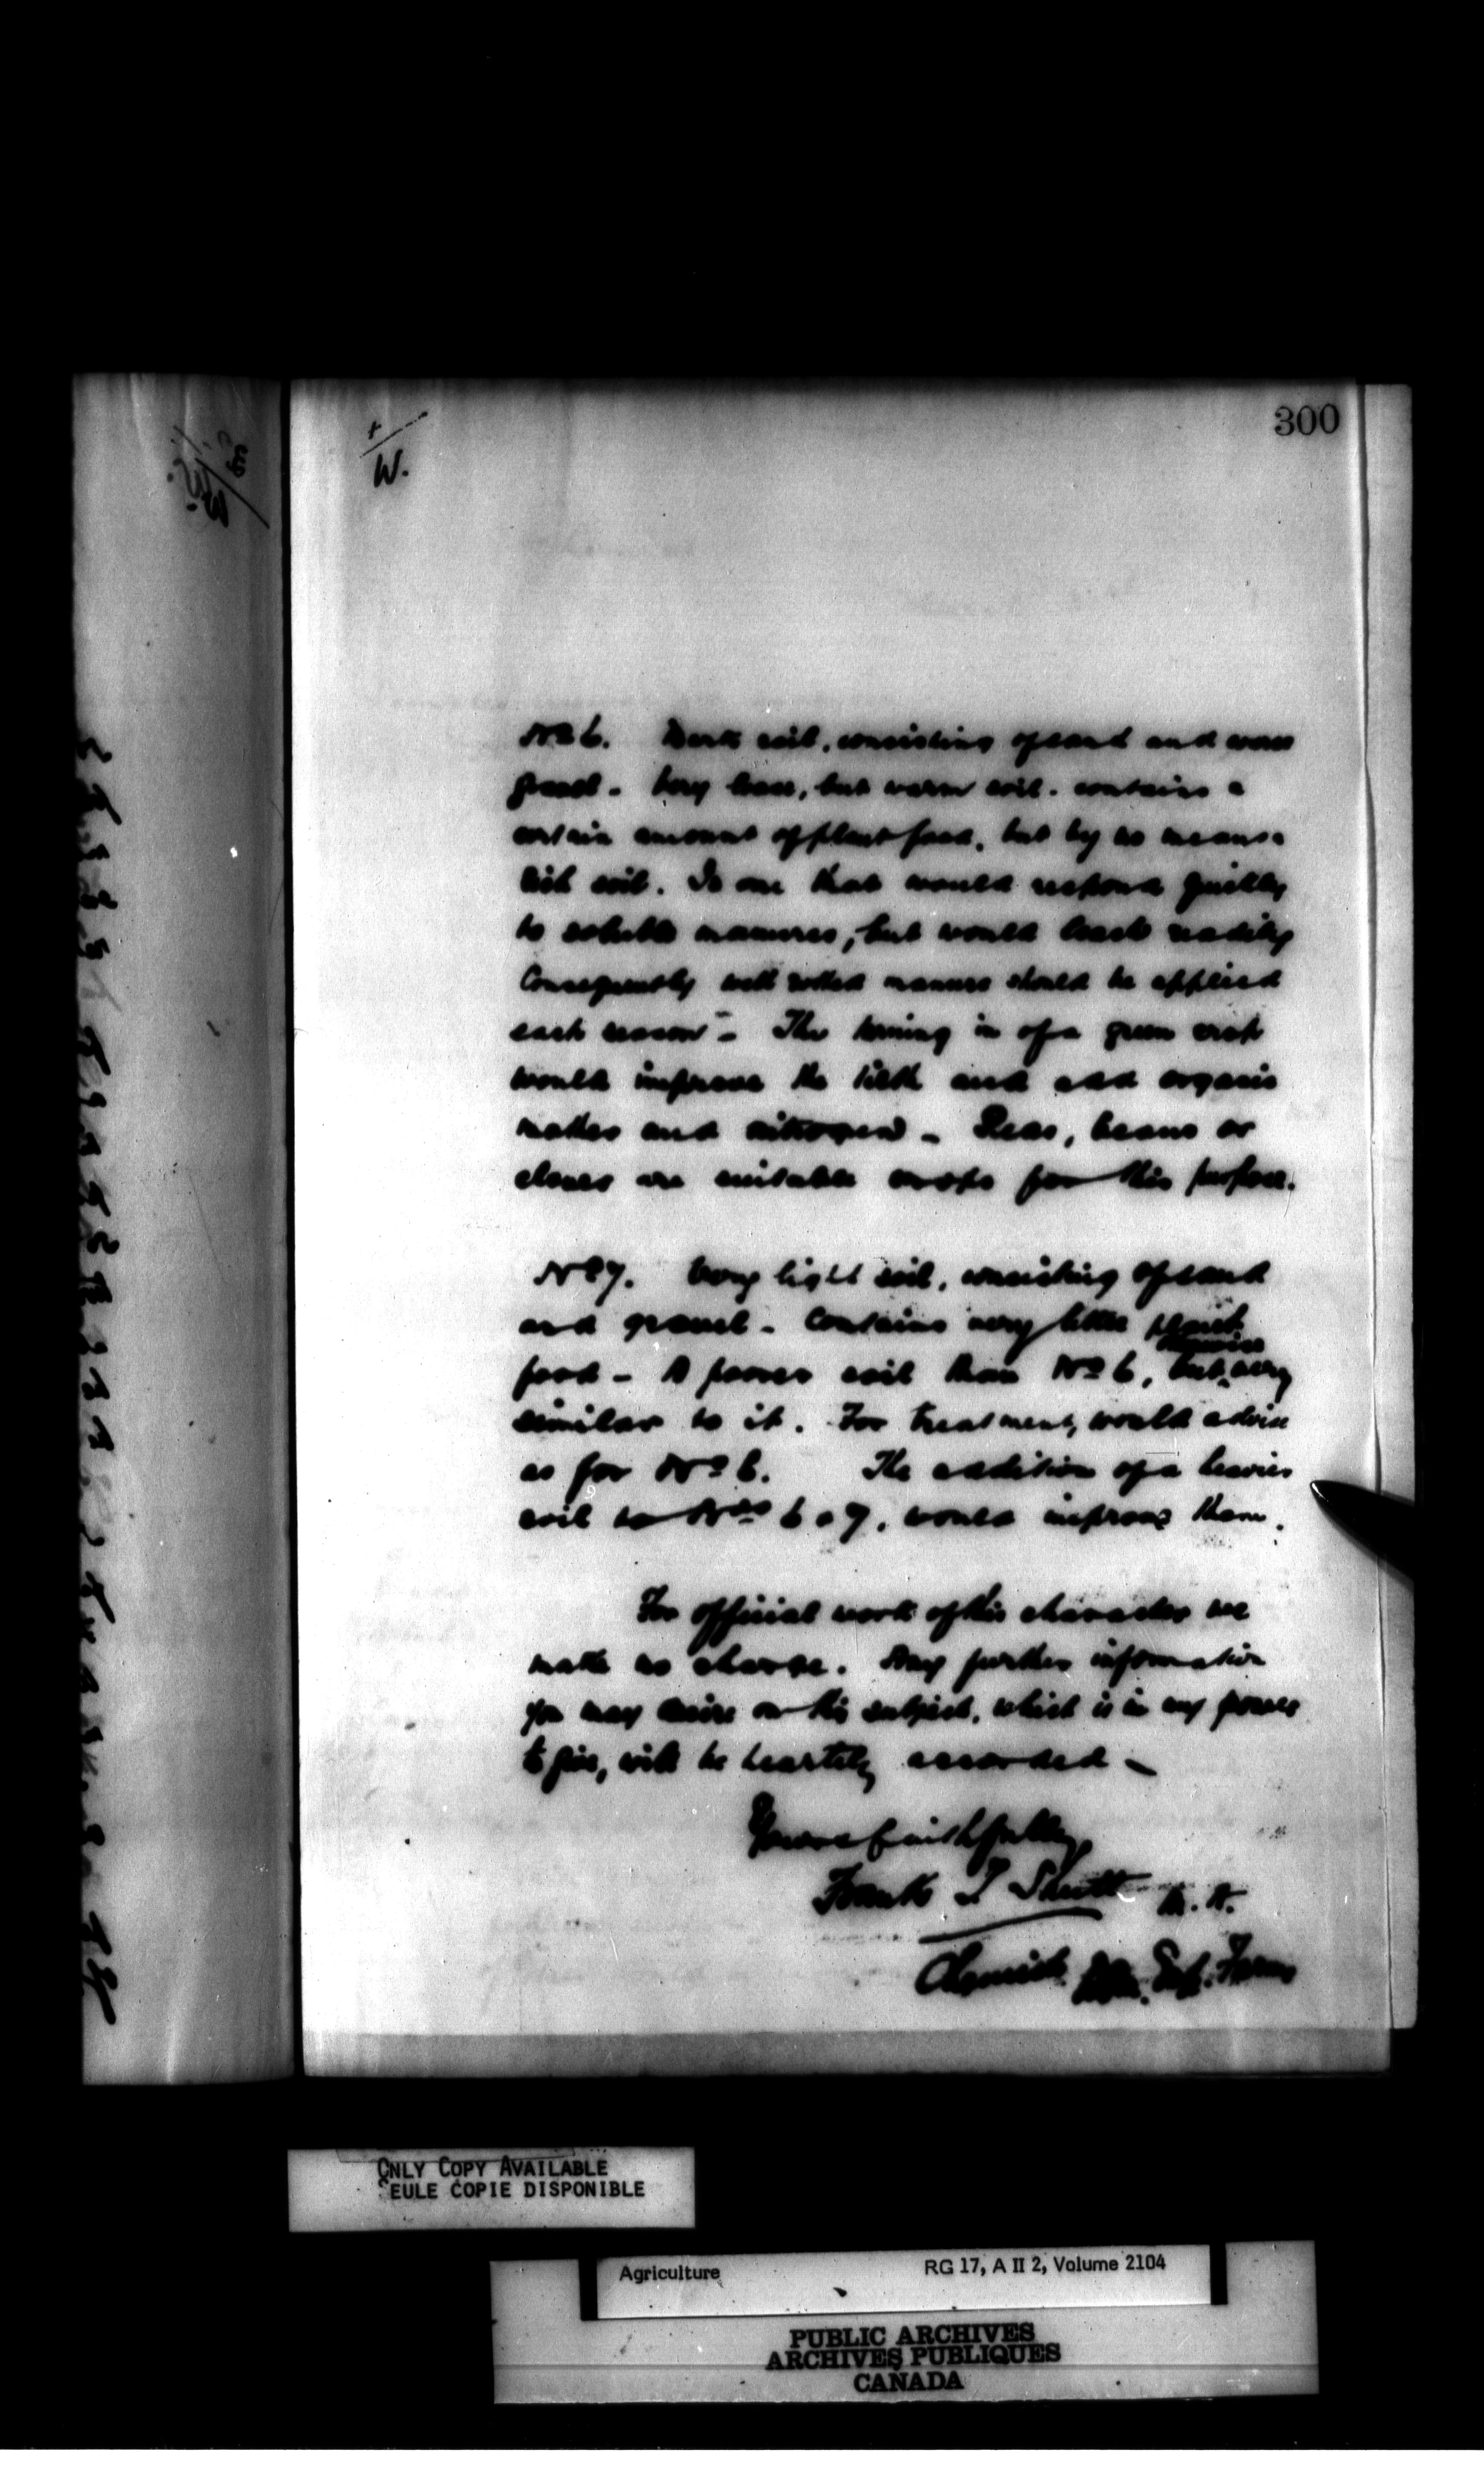 300
W.
No 6. Dark soil, consisting of sand and some
gravel - Very loose, but warm soil. contains a
certain amount of plant food, but by no means a
rich soil. Is one that would respond quickly
to soluble manures, but would leach readily
Consequently well rotted manure should be applied
each season - The turning in of a green crop
would improve the tilth and add organic
matter and nitrogen - Peas, beans or
clover are suitable crops for this purpose.
No 7. Very light soil, consisting of sand
and gravel - Contains very little plant
food - A poorer soil than No 6, but very
similar to it. For treatment, would advise
as for No 6. The addition of a heavier
soil to Nos 6 & 7, would improve them.
For official work of this character we
make no charge. Any further information
you may desire on this subject, which is in my power
to give, will be heartily accorded -
Yours faithfully
Frank T Shutt M.A.
Chemist Dom. Exp. Farms
ONLY COPY AVAILABLE
SEULE COPIE DISPONIBLE
Agriculture RG 17, A II 2, Volume 2104
PUBLIC ARCHIVES
ARCHIVES PUBLIQUES
CANADA